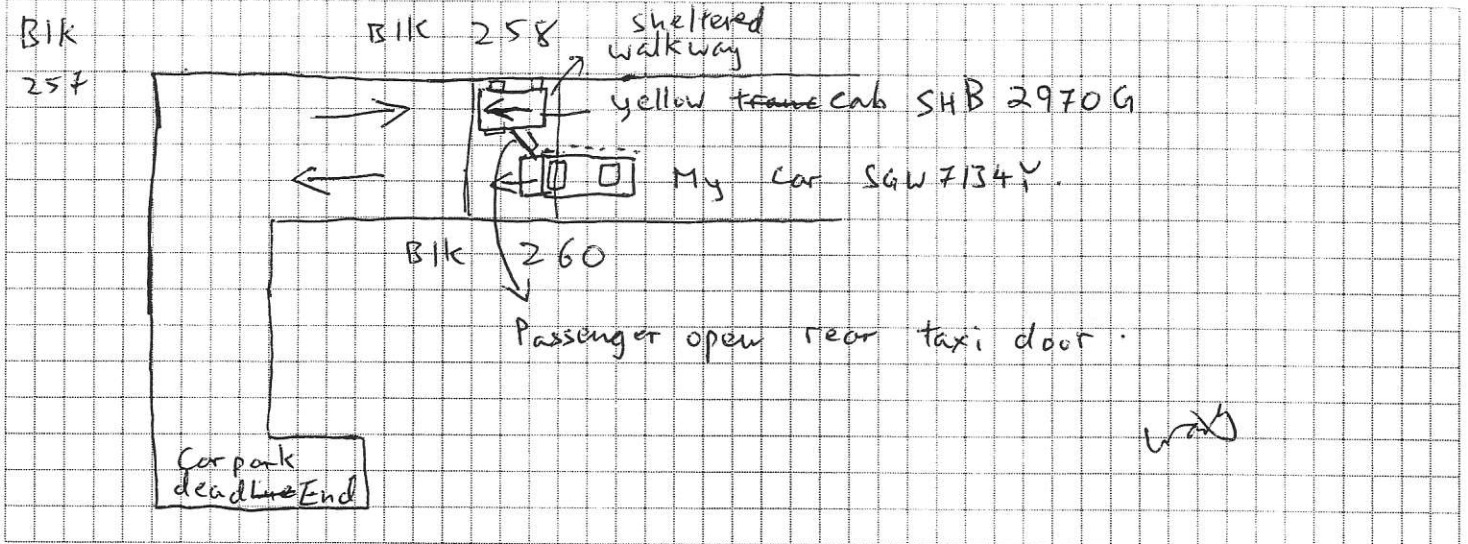 Blk
257
Blk 258
sheltered
walkway
yellow cab SHB 2970G
My car SGW 7134Y.
Blk 260
Passenger open rear taxi door.
Car park
dead End